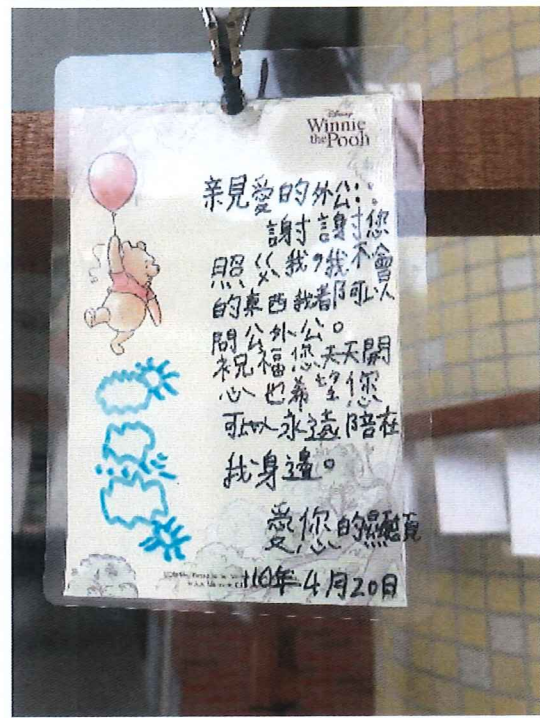 Disney
Winnie
the Pooh
親愛的外公:
謝謝您
照父我,我不會
的東西我都可以
問公外公。
祝福您天天開
心也希望您
可以永遠陪在
我身邊。
愛您的
110年4月20日